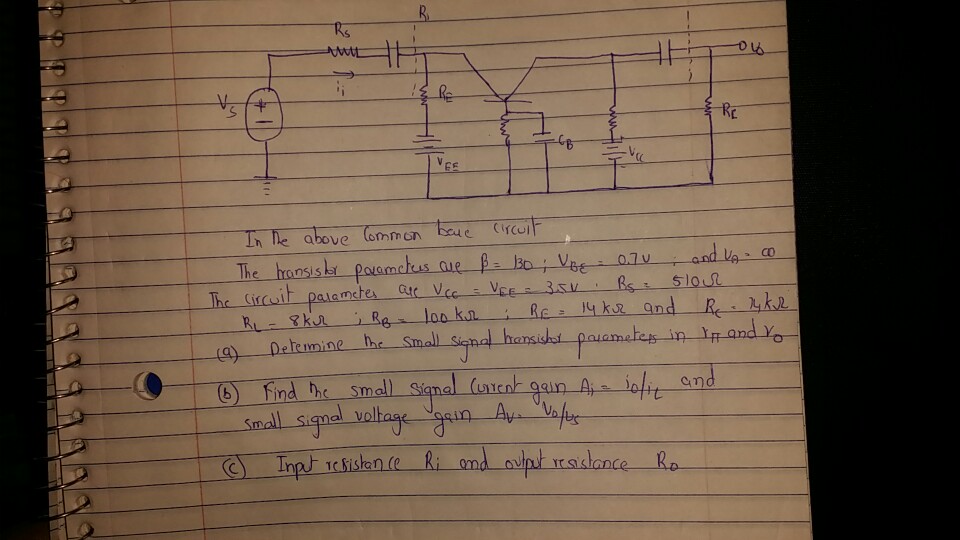 Rs
Ri
ii
Vs
RE
VEE
CB
VCC
RC
In the above Common base circuit
The transistor parameters are β = 130 ; VBE = 0.7V ; and VA = ∞
The circuit parameter are Vcc = VEE = 3.5V . Rs = 510Ω
RL = 8kΩ ; RB = 100 kΩ ; RE = 14 kΩ and Rc =
(a) Determine the small signal transistor parameters in rπ and ro
(b) Find the small signal current gain Ai = io/ii and
small signal voltage gain Av = Vo/Vs
(c) Input resistance Ri and output resistance Ro